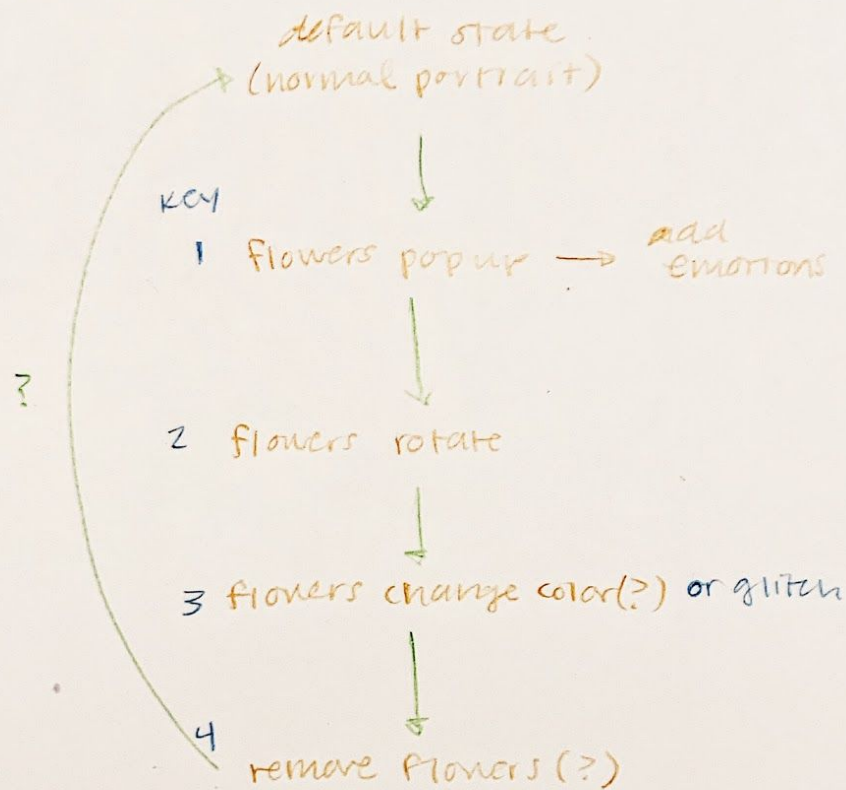 default state
(normal portrait)
Key
1 flowers popup → add
emotions
?
2 flowers rotate
3 flowers change color(?) or glitch
4
remove flowers (?)